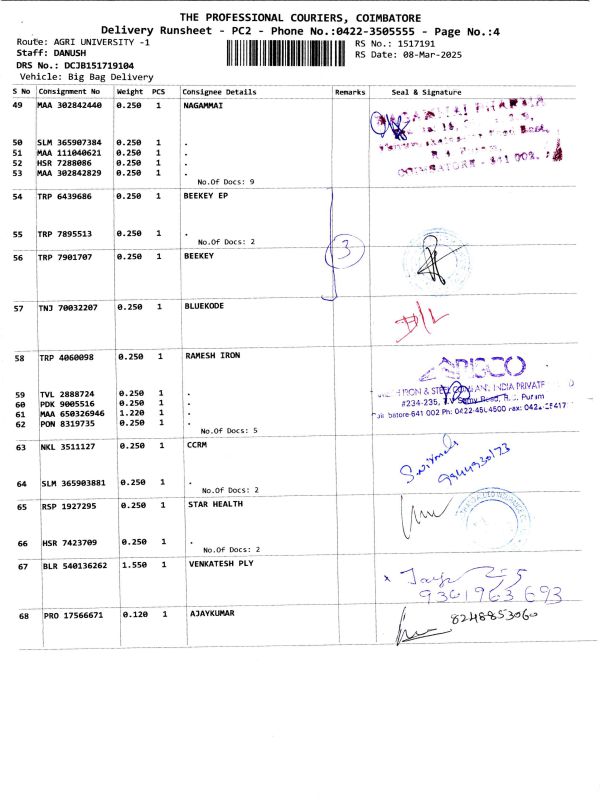 THE PROFESSIONAL COURIERS, COIMBATORE
Delivery Runsheet - PC2 - Phone No.:0422-3505555 - Page No.:4
Route: AGRI UNIVERSITY -1
RS No.: 1517191
Staff: DANUSH
RS Date: 08-Mar-2025
DRS No.: DCJB151719104
Vehicle: Big Bag Delivery
S No Consignment No Weight PCS Consignee Details Remarks Seal & Signature
49 MAA 302842440 0.250 1 NAGAMMAI
50 SLM 365907384 0.250 1 .
51 MAA 111040621 0.250 1 .
52 HSR 7288086 0.250 1 .
53 MAA 302842829 0.250 1 .
COIMBATORE - 641 002.
No.Of Docs: 9
54 TRP 6439686 0.250 1 BEEKEY EP
55 TRP 7895513 0.250 1 .
No.Of Docs: 2
3
56 TRP 7901707 0.250 1 BEEKEY
57 TNJ 70032207 0.250 1 BLUEKODE
58 TRP 4060098 0.250 1 RAMESH IRON
59 TVL 2888724 0.250 1 .
IRON & STEEL COMPANY INDIA PRIVATE
60 PDK 9005516 0.250 1 .
#234-235, T.V Samy Road, R.S. Puram
61 MAA 650326946 1.220 1 .
62 PON 8319735 0.250 1 .
No.Of Docs: 5
63 NKL 3511127 0.250 1 CCRM
9944930173
64 SLM 365903881 0.250 1 .
No.Of Docs: 2
65 RSP 1927295 0.250 1 STAR HEALTH
66 HSR 7423709 0.250 1 .
No.Of Docs: 2
67 BLR 540136262 1.550 1 VENKATESH PLY
9361963693
68 PRO 17566671 0.120 1 AJAYKUMAR
8248853060